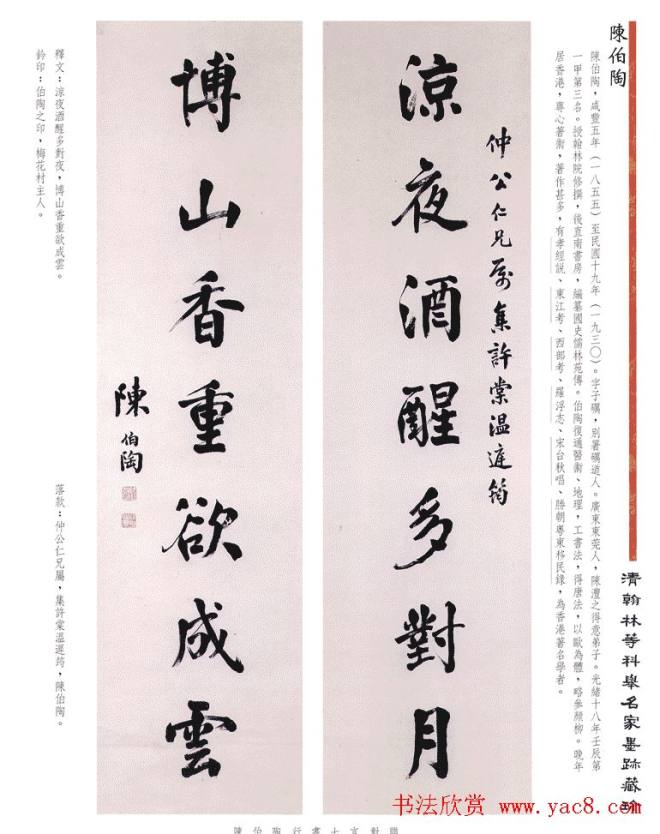 陳伯陶
陳伯陶，咸豐五年（一八五五）至民國十九年（一九三〇）。字子礪，別署礪道人。廣東東莞人，陳澧之得意弟子。光緒十八年壬辰第
一甲第三名。授翰林院修撰，後直南書房，編纂國史儒林苑傳。伯陶復通醫術、地理，工書法，得唐法，以歐為體，略參顏柳。晚年
居香港，專心著術，著作甚多，有孝經說、東江考、西部考、羅浮志、宋台秋唱、勝朝粵東移民錄，為香港著名學者。
清翰林等科舉名家墨跡藏珍
仲公仁兄屬集許棠温庭筠
涼夜酒醒多對月
博山香重欲成雲
陳伯陶
釋文：涼夜酒醒多對夜，博山香重欲成雲。
鈐印：伯陶之印，梅花村主人。
落款：仲公仁兄屬，集許棠溫遲筠，陳伯陶。
陳伯陶行書七言對聯
书法欣赏 www.yac8.com